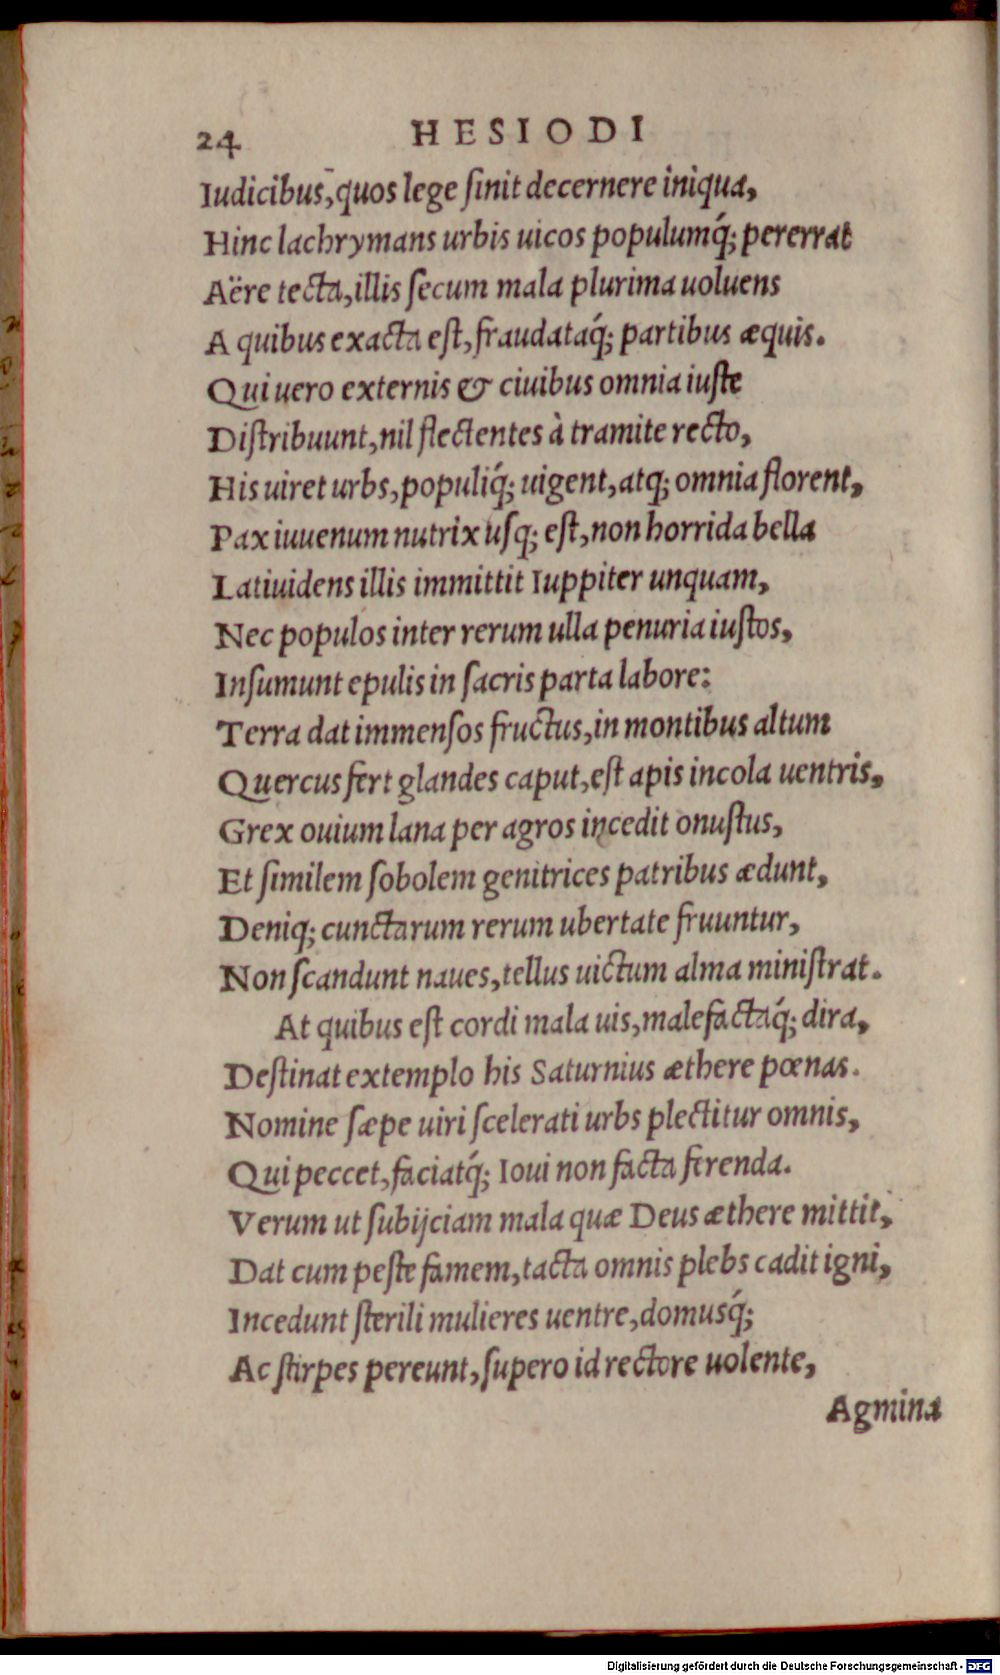 24 HESIODI
Iudicibus, quos lege ſinit decernere iniqua,
Hinc lachrymans urbis uicos populumq́; pererrat
Aëre tecta, illis ſecum mala plurima uoluens
A quibus exacta eſt, fraudataq́; partibus æquis.
Qui uero externis & ciuibus omnia iuſte
Diſtribuunt, nil flectentes à tramite recto,
His uiret urbs, populiq́; uigent, atq; omnia florent,
Pax iuuenum nutrix uſq; eſt, non horrida bella
Latiuidens illis immittit Iuppiter unquam,
Nec populos inter rerum ulla penuria iuſtos,
Inſumunt epulis in ſacris parta labore:
Terra dat immenſos fructus, in montibus altum
Quercus fert glandes caput, eſt apis incola uentris,
Grex ouium lana per agros incedit onuſtus,
Et ſimilem ſobolem genitrices patribus ædunt,
Deniq; cunctarum rerum ubertate fruuntur,
Non ſcandunt naues, tellus uictum alma miniſtrat.
At quibus eſt cordi mala uis, malefactaq́; dira,
Deſtinat extemplo his Saturnius æthere pœnas.
Nomine ſæpe uiri ſcelerati urbs plectitur omnis,
Qui peccet, faciatq́; Ioui non facta ferenda.
Verum ut ſubijciam mala quæ Deus æthere mittit,
Dat cum peſte famem, tacta omnis plebs cadit igni,
Incedunt ſterili mulieres uentre, domusq́;
Ac ſtirpes pereunt, ſupero id rectore uolente,
Agmina
Digitalisierung gefördert durch die Deutsche Forschungsgemeinschaft - DFG